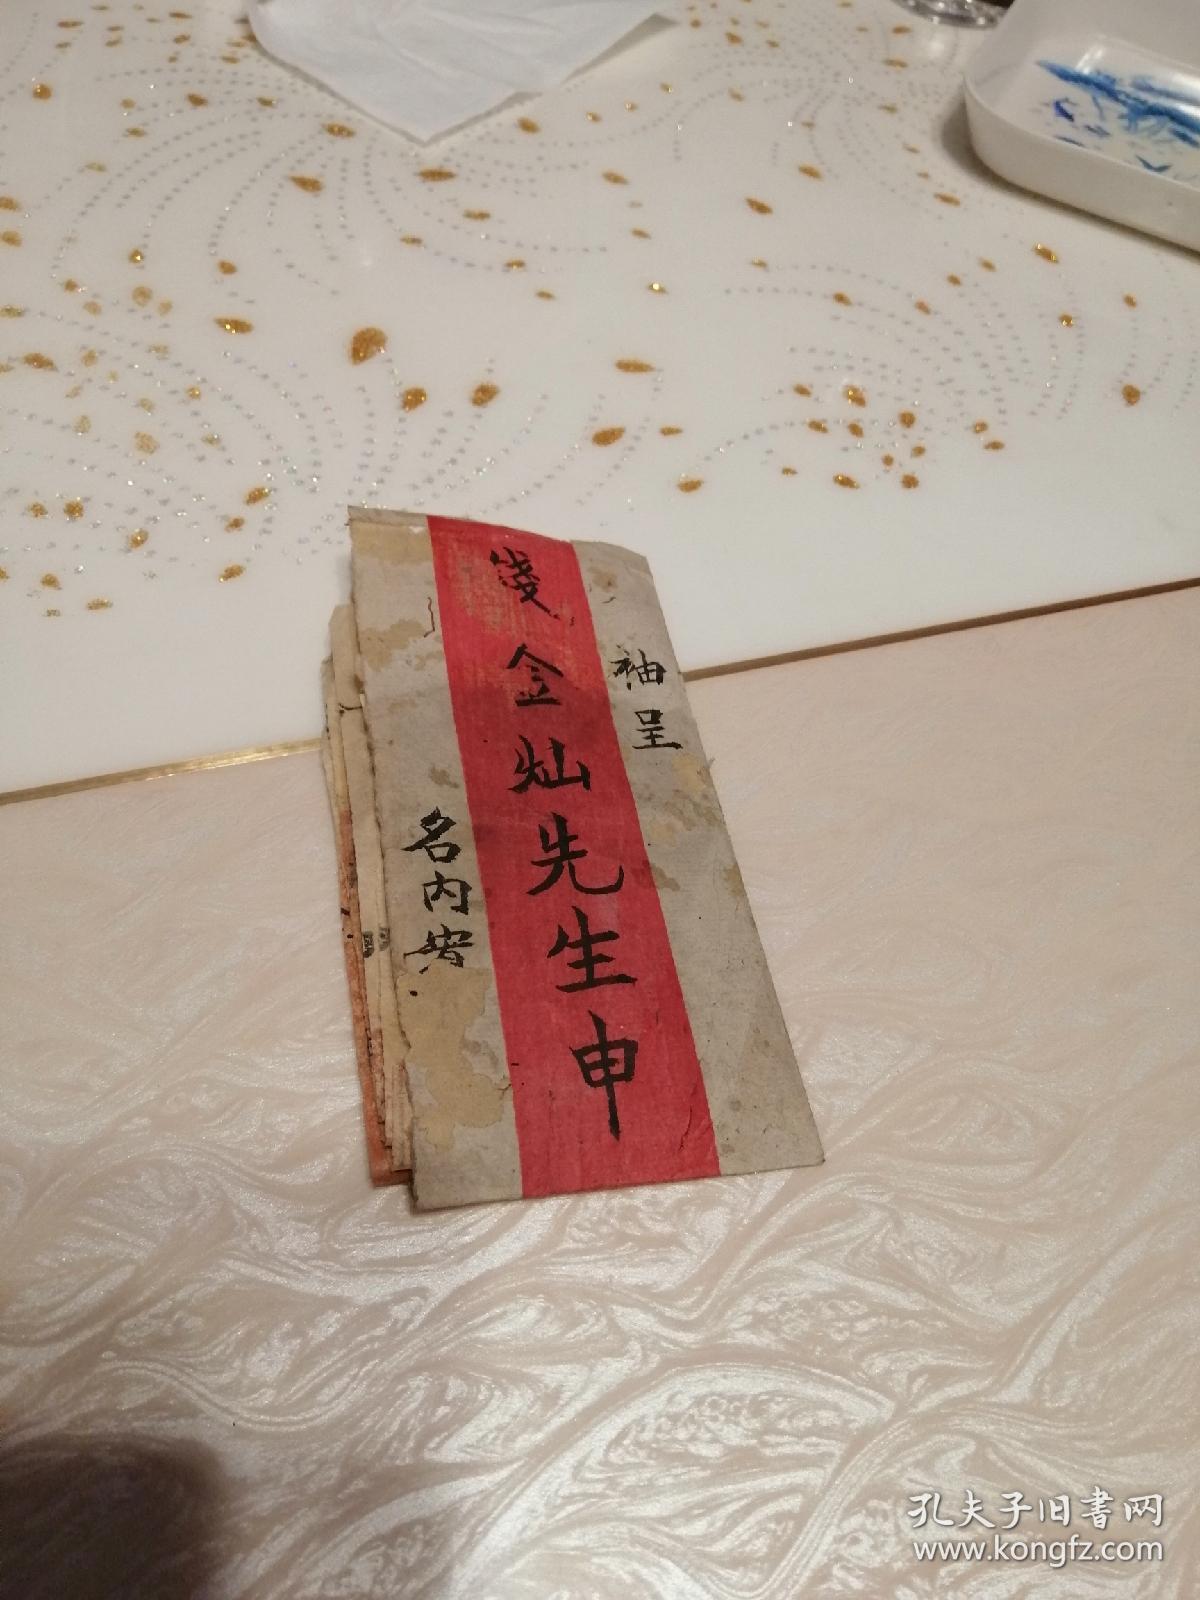 袖呈
笺金灿先生申
名内安
孔夫子旧书网
www.kongfz.com